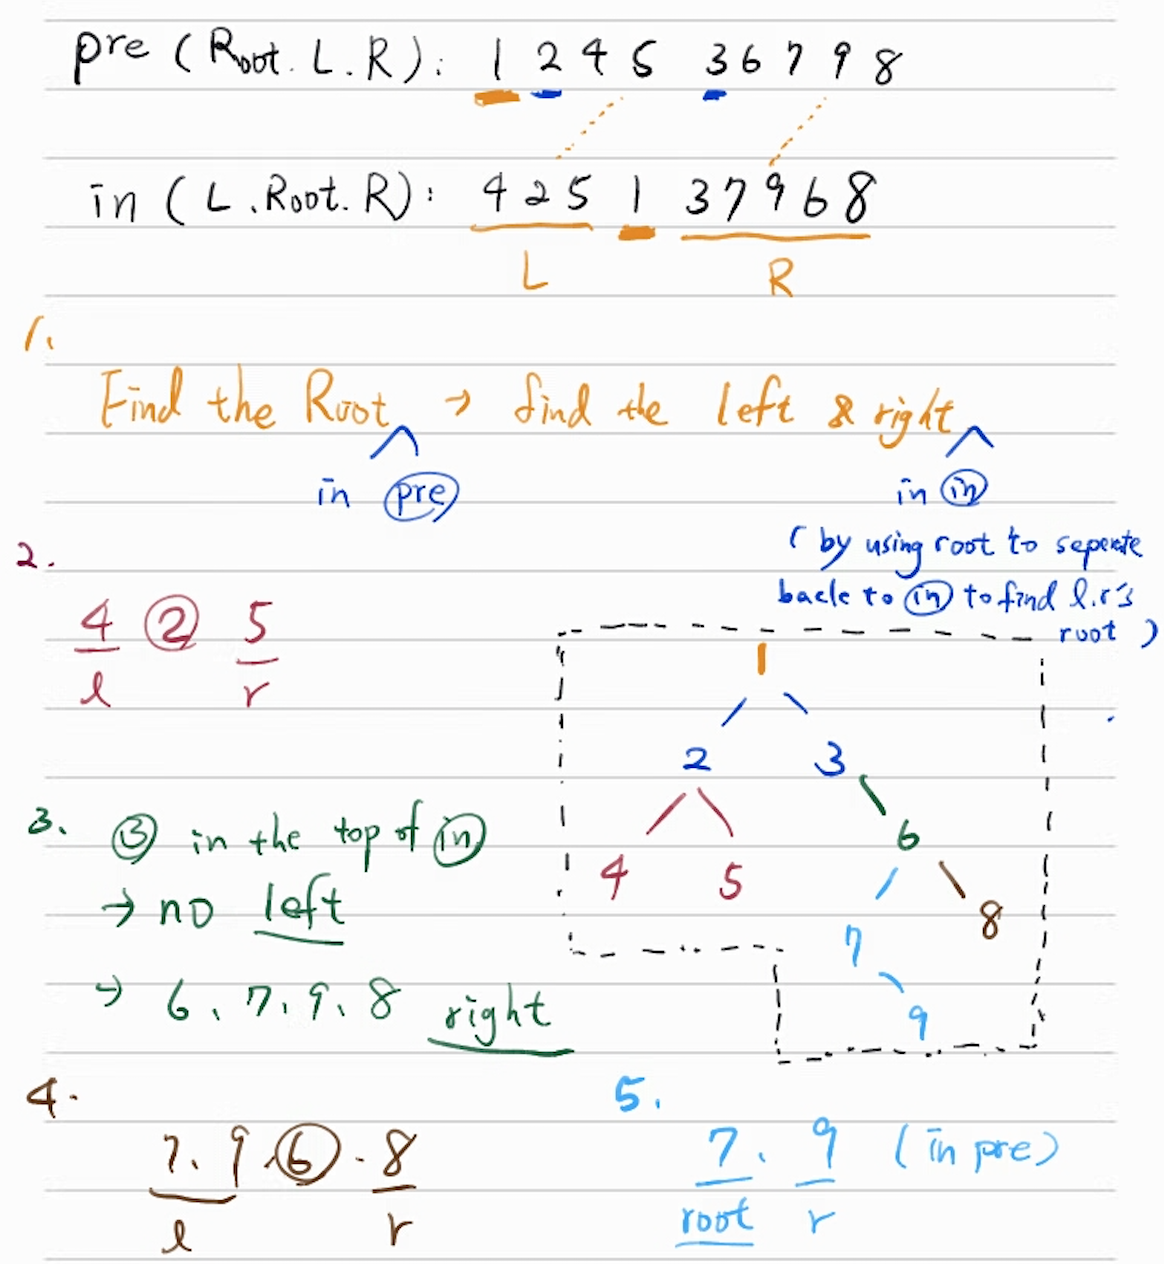 pre (Root. L. R): 1 2 4 5 3 6 7 9 8
in (L. Root. R): 4 2 5 1 3 7 9 6 8
L R
1.
Find the Root → find the left & right
in pre in in
(by using root to seperate
2.
back to in to find l.r's
4 2 5 root)
l r
1
2 3
3. 3 in the top of in
6
4 5
→ no left
8
7
→ 6、7、9、8 right
9
4. 5.
7、9、6、8
7、9 (in pre)
l r
root r